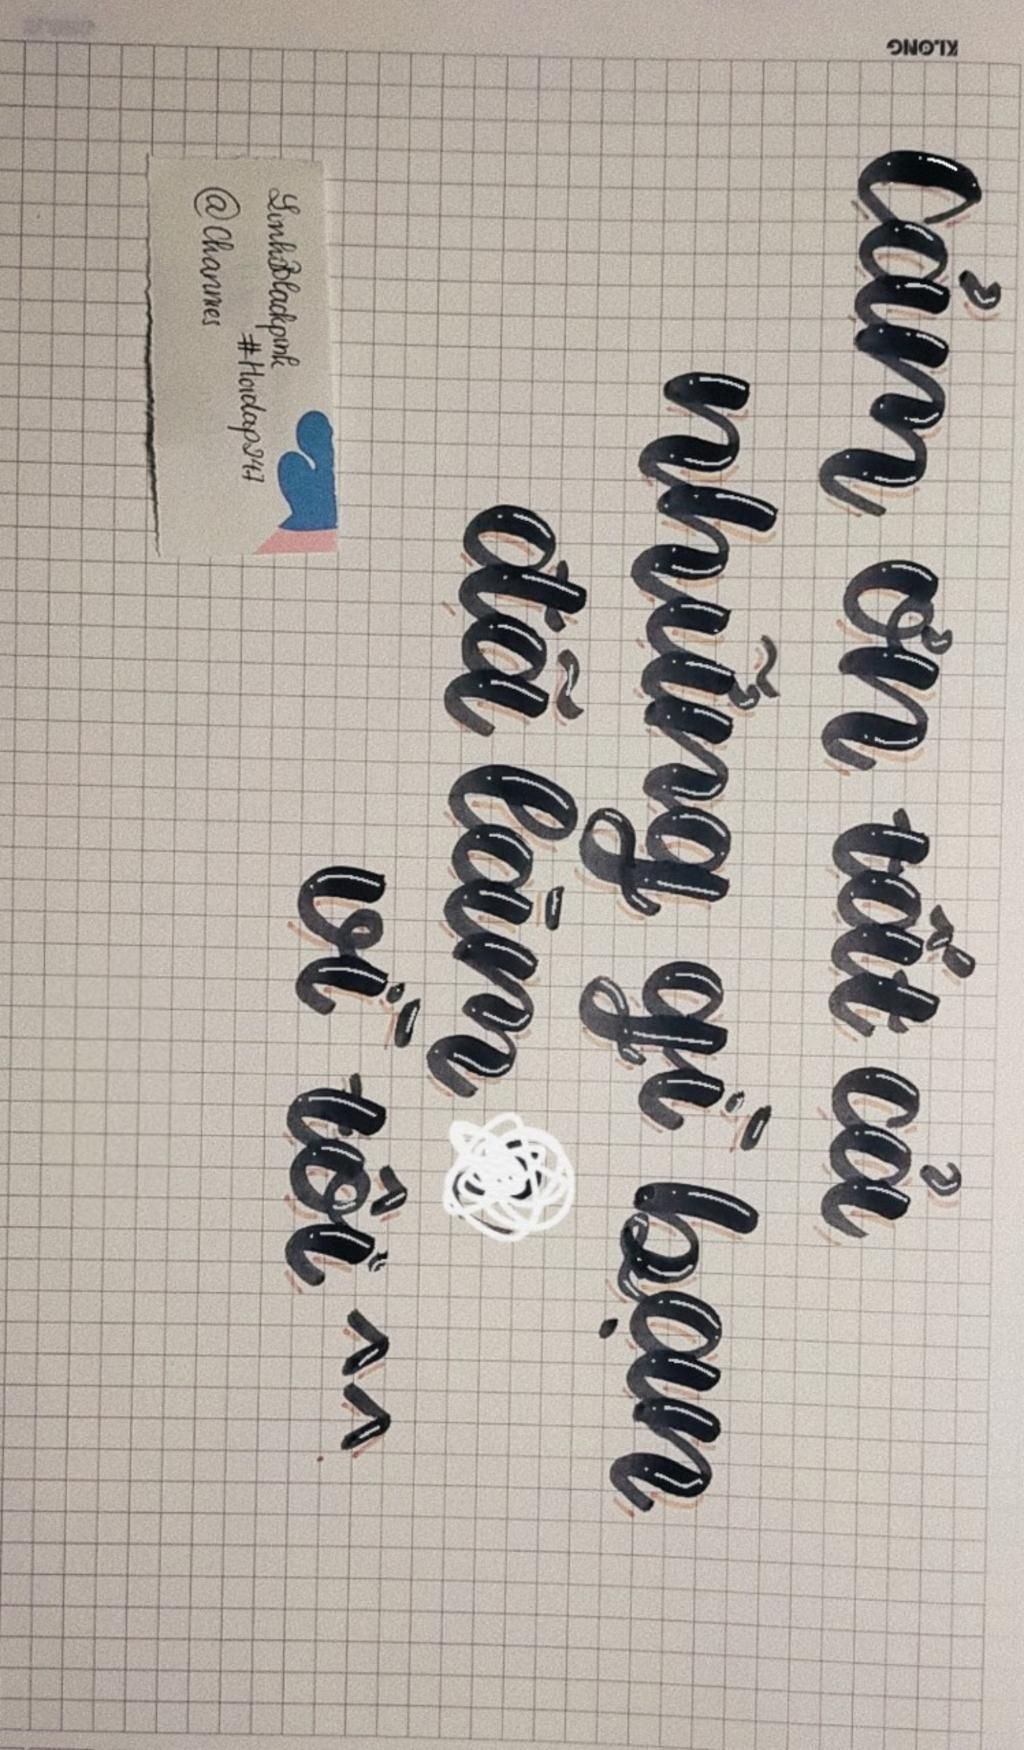 KLONG
Cản ơn tất cả
những gì bạn
đã làn
vì tôi ^^
LinhBlackpink
#Hoidap247
@Channies